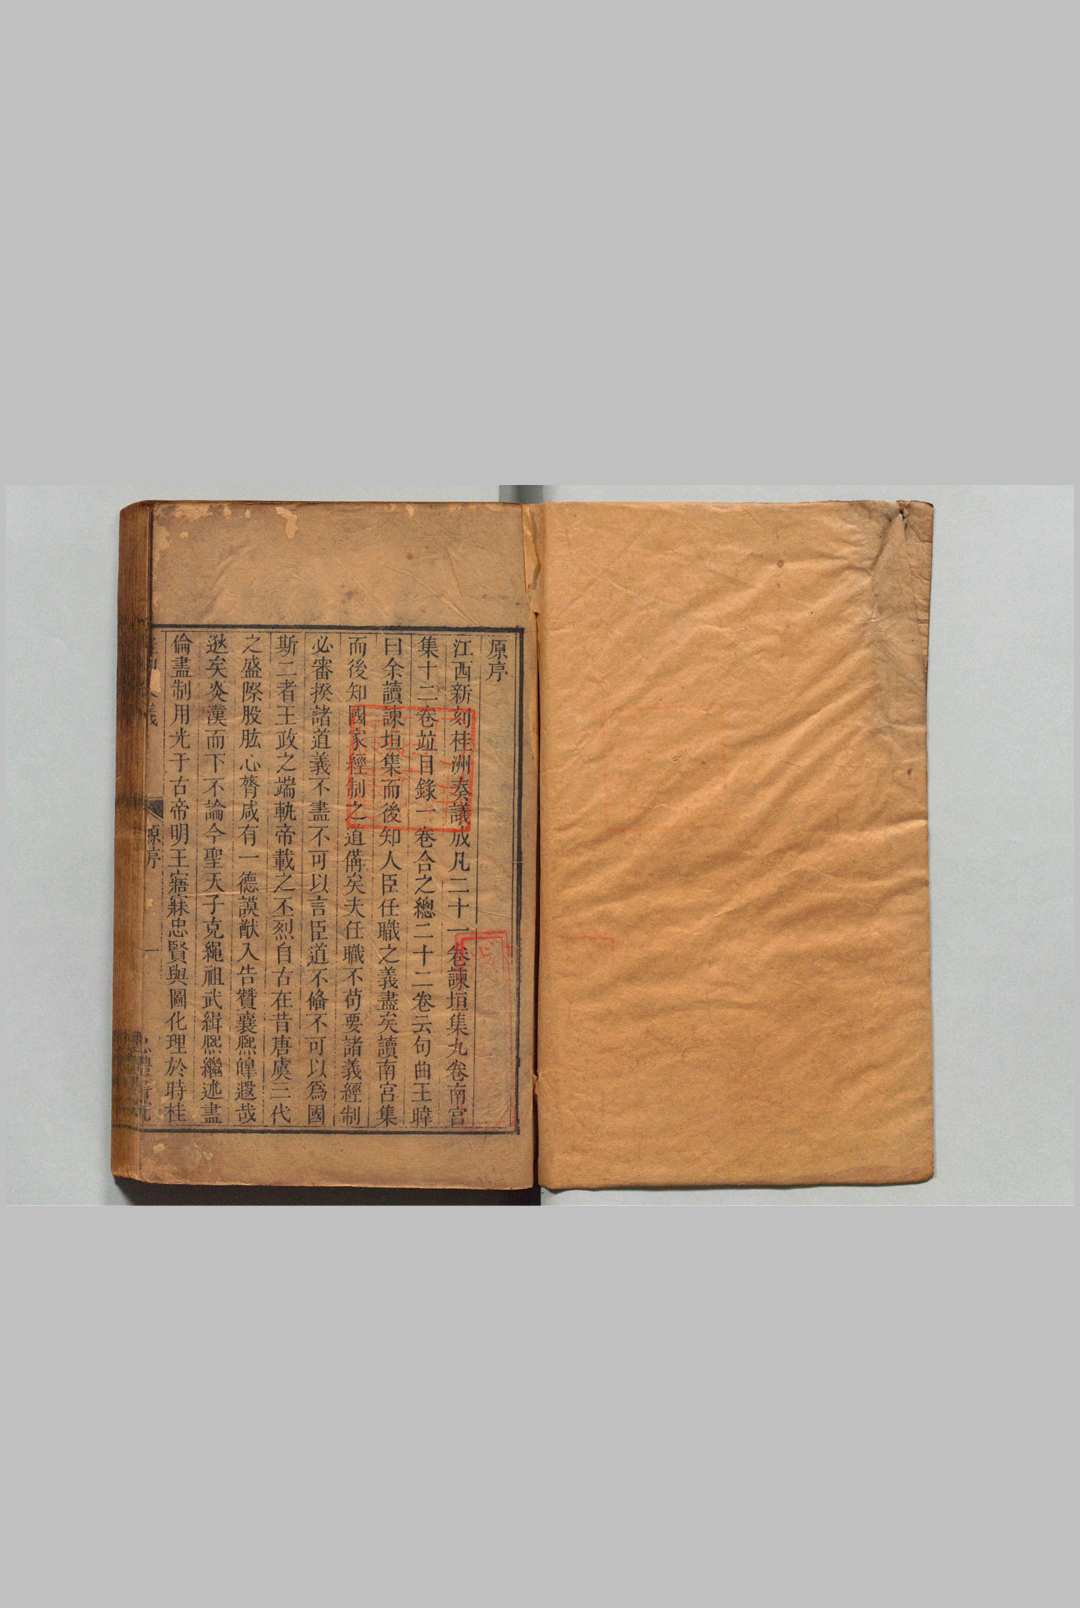 原序
江西新刻桂洲奏議成凡二十一卷諫垣集九卷南宮
集十二卷並目錄一卷合之總二十二卷云句曲王暐
曰余讀諫垣集而後知人臣任職之義盡矣讀南宮集
而後知國家經制之道備矣夫任職不苟要諸義經制
必審揆諸道義不盡不可以言臣道不俻不可以爲國
斯二者王政之端軌帝載之丕烈自古在昔唐虞三代
之盛際股肱心膂咸有一德謨猷入告贊襄熈皥遐哉
逖矣炎漢而下不論今聖天子克繩祖武緝熈繼述盡
倫盡制用光于古帝明王寤寐忠賢與圖化理於時桂
原序 一